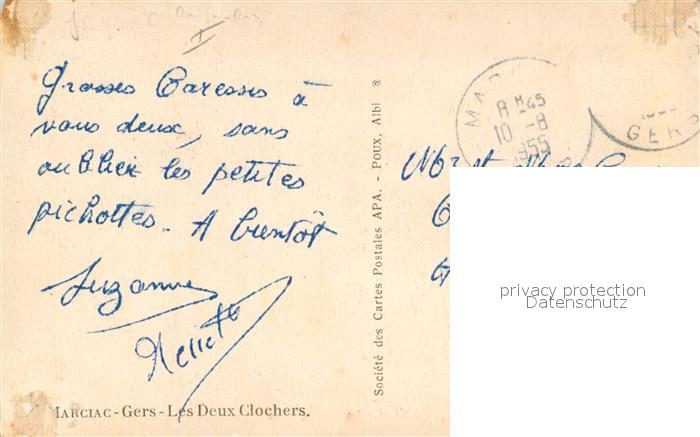 Grosses Caresses à
vous deux, sans
oublier les petites
pichottes. A bientôt
Suzanne
MARCIAC - Gers - Les Deux Clochers.
Société des Cartes Postales APA. - Poux, Albi
8 H 45
10 - 8
1955
GERS
privacy protection
Datenschutz